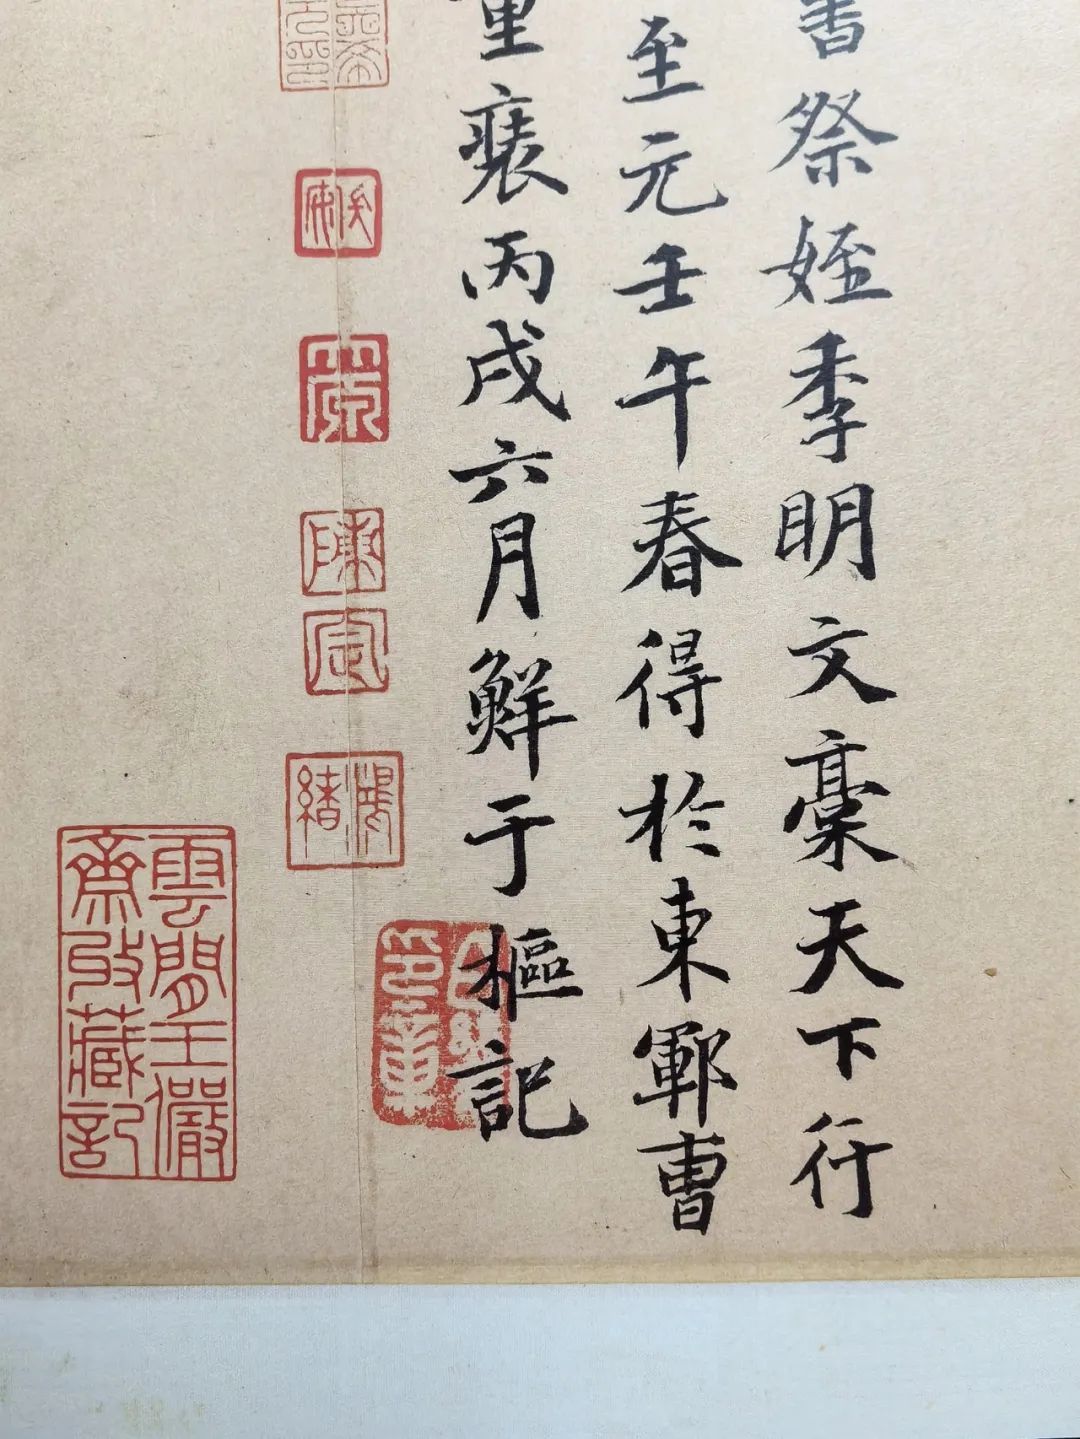 書祭姪季明文稾天下行
至元壬午春得於東鄆曹
重裱丙戌六月鮮于樞記
雲間王儼
齋攷藏記